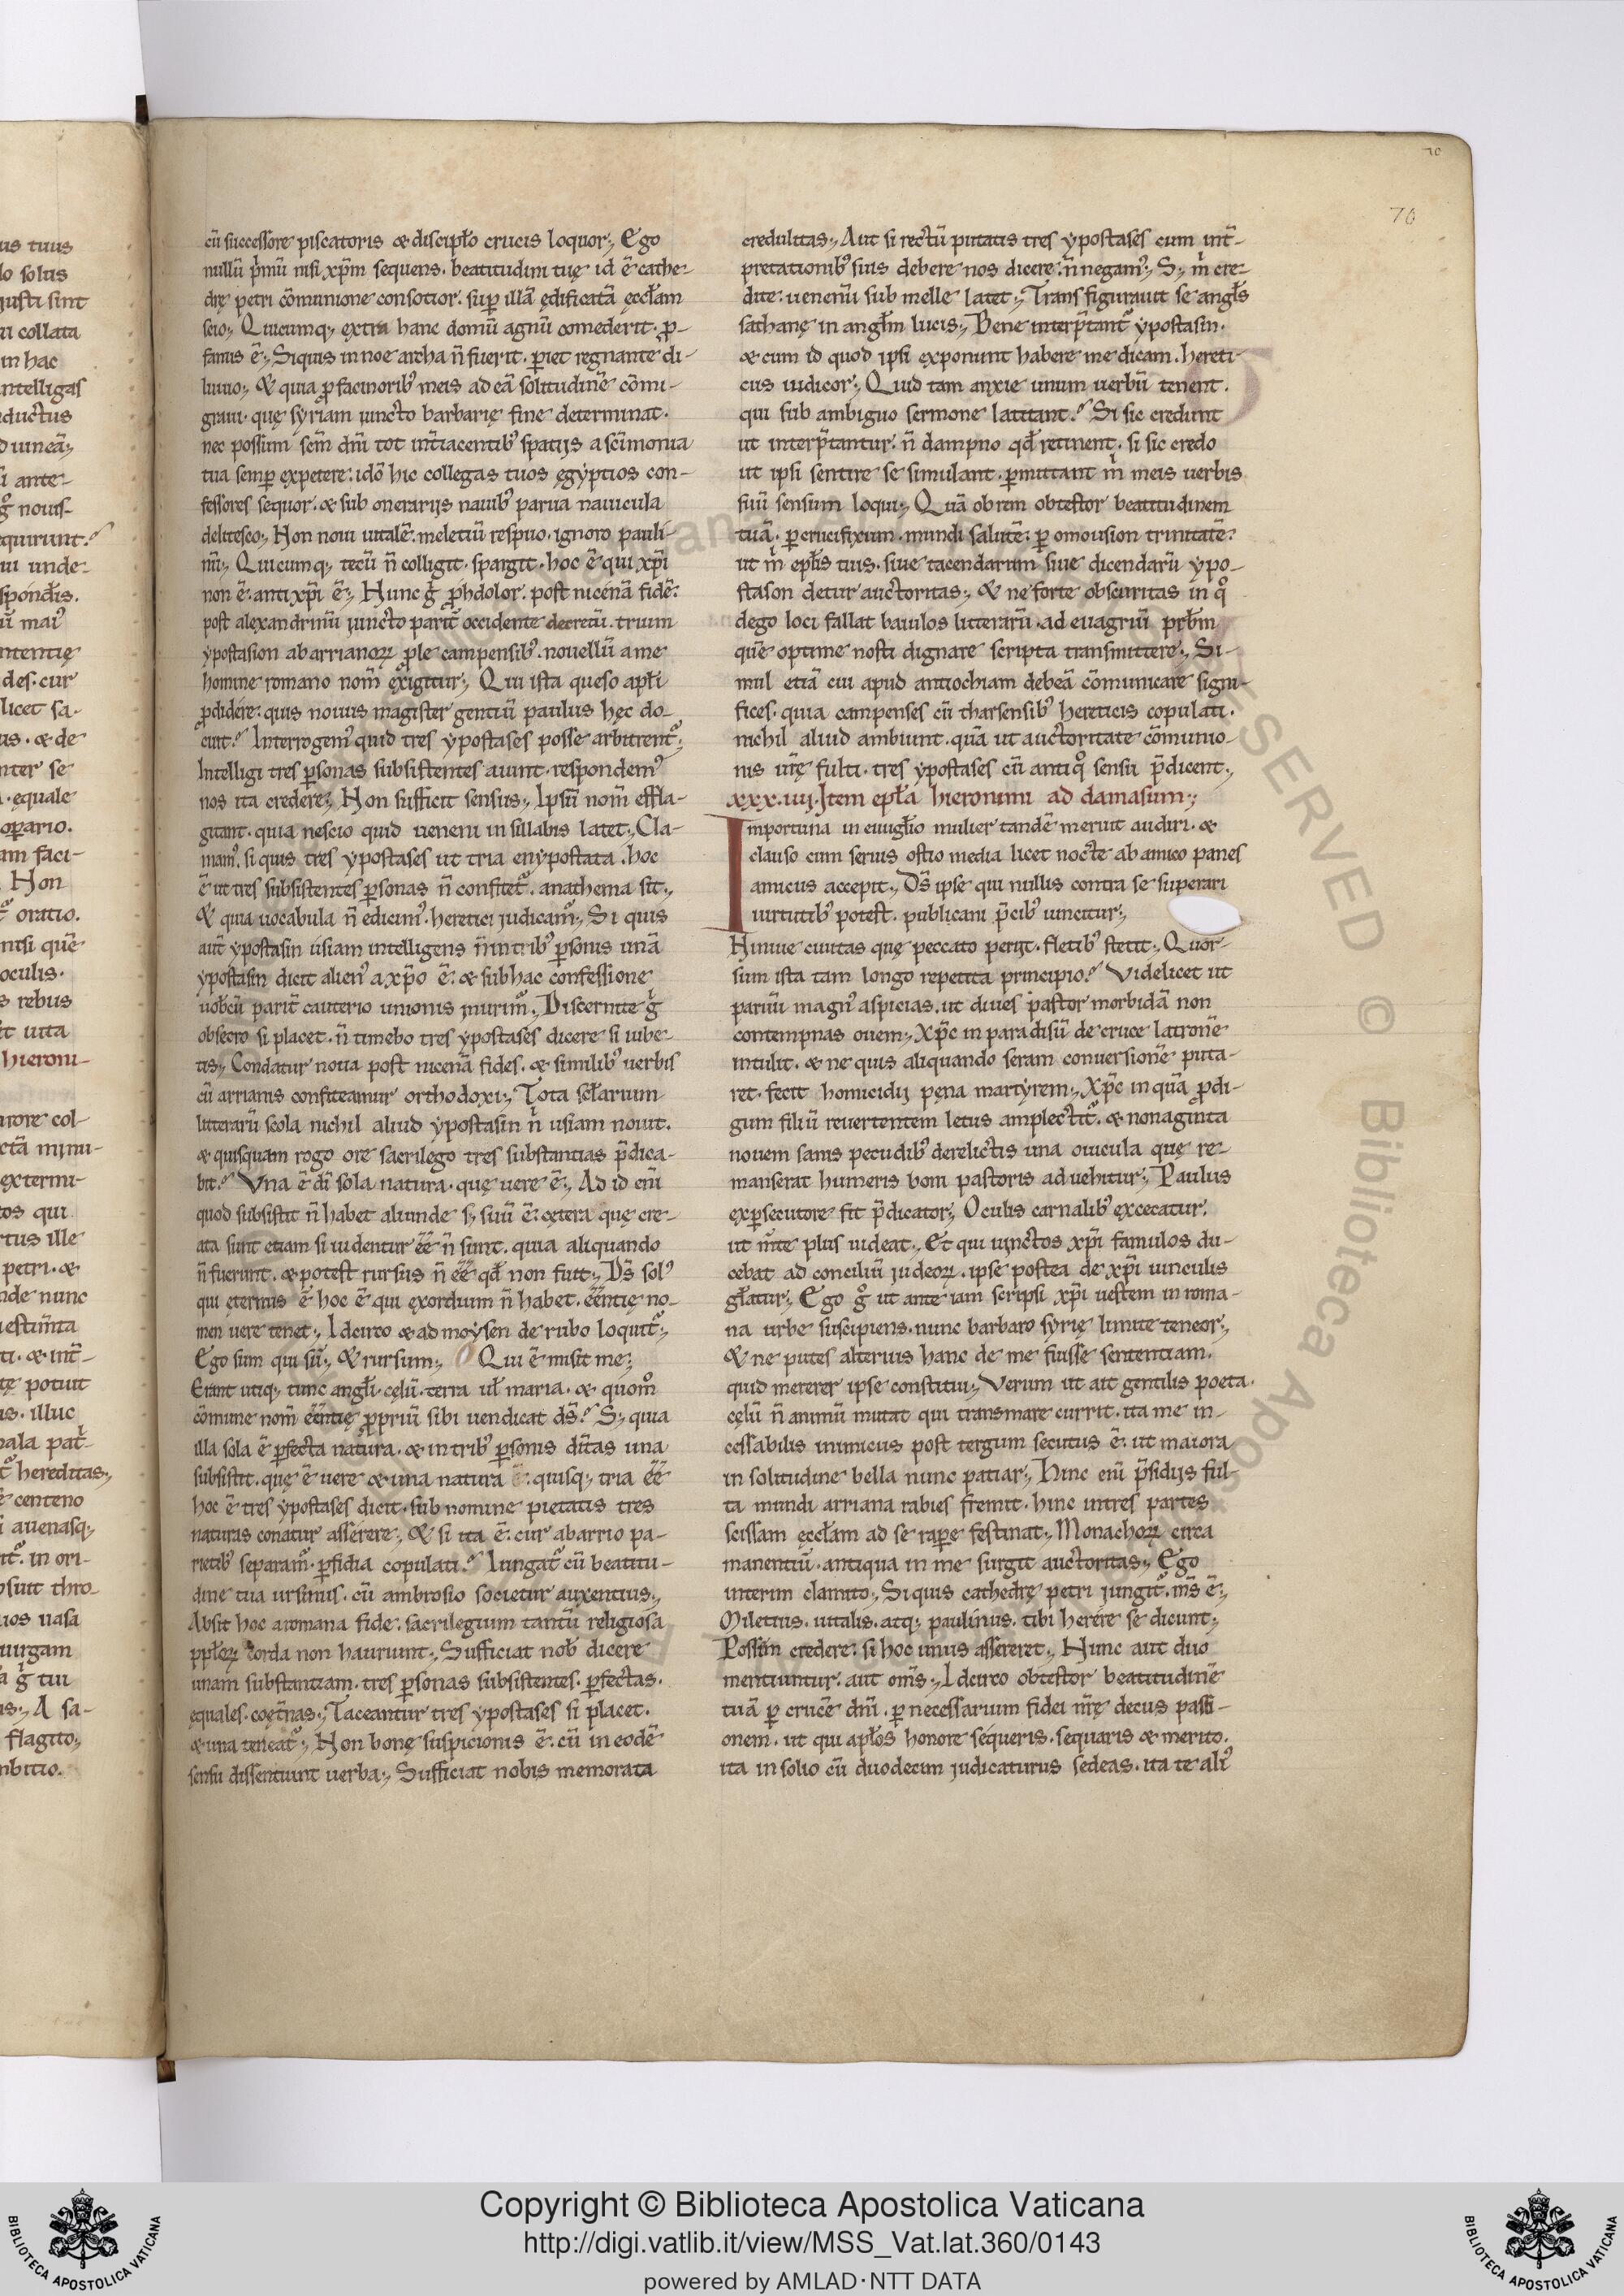 us tuus
lo solus
iusti sint
ui collata
in hac
ntelligas
ductus
d uineā;
ū ante-
nouis-
quirunt.
ui unde-
spondis.
ntentię
des. cur
licet sa-
us. & de
nter se
. ęquale
opario.
am faci-
Non
oratio.
nisi quē
oculis.
s rebus
uita
hieroni-
urore col-
extermi-
tos qui
rtus ille
petri. &
nde nunc
potuit
is. illuc
hereditas;
centeno
auenasq;
in ori-
suit thro
uos uasa
uirgam
tui
A sa-
flagito;
mbitio.
cū successore piscatoris & discipło crucis loquor; Ego
nullū p̄mū nisi xp̄m sequens. beatitudini tuę id ē cathe-
drę petri cōmunione consotior. sup illā ędificatā ęccłam
scio; Quicumq; extra hanc domū agnū comederit. p-
fanus ē; Siquis in noe archa n̄ fuerit. piet regnante di-
luuio; & quia pfacinorib' meis ad eā solitudinē cōmi-
graui. quę syriam iuncto barbarię fine determinat.
nec possum sc̄m dn̄i tot int̄iacentib' spatijs a sc̄imonia
tua semp expetere. idō hic collegas tuos ęgyptios con-
fessores sequor. & sub onerarijs nauib' parua nauicula
delitesco; Non noui uitalē. meletiū respuo. ignoro pauli-
nū; Quicumq; tecū n̄ colligit. spargit. hoc ē qui xp̄i
non ē. antixp̄i ē; Hunc g̓ phdolor. post nicenā fidē.
post alexandrinū iuncto parit̄ occidente decretū. trium
ypostasion ab arrianoꝝ ple campensib'. nouellū a me
homine romano nom̄ exigitur; Qui ista queso apłi
pdidere. quis nouus magister gentiū paulus hęc do-
cuit? Interrogem' quid tres ypostases posse arbitrent'.
Intelligi tres psonas subsistentes aiunt. respondem'
nos ita credere; Non sufficit sensus; Ipsū nom̄ effla-
gitant. quia nescio quid ueneni in sillabis latet; Cla-
mam'. si quis tres ypostases ut tria enypostata. hoc
ē ut tres subsistentes psonas n̄ confitet'. anathema sit;
& quia uocabula n̄ edicim'. heretici judicam'; Si quis
aut̄ ypostasin usiam intelligens n̄ in trib' psonis unā
ypostasin dicit alien' a xp̄o ē. & sub hac confessione
uobcū parit̄ cauterio unionis inurim'; Discernite g̓
obsecro si placet. n̄ timebo tres ypostases dicere si iube-
tis; Condatur noua post nicenā fides. & similib' uerbis
cū arrianis confiteamur orthodoxi; Tota scłarium
litterarū scola nichil aliud ypostasin n̓ usiam nouit.
& quisquam rogo ore sacrilego tres substantias p̄dica-
bit? Vna ē di sola natura. quę uere ē; Ad id eni
quod subsistit n̄ habet aliunde s; suū ē. cętera quę cre-
ata sunt etiam si uidentur ēē n̄ sunt. quia aliquando
n̄ fuerunt. & potest rursus n̄ ēē qd non fuit; Ds̄ sol'
qui eternus ē hoc ē qui exordium n̄ habet. ēēntię no-
men uere tenet; Idcirco & ad moysen de rubo loquit';
Ego sum qui sū; & rursum; Qui ē misit me;
Erant utiq; tunc angli. cęlū. terra uł maria. & quom°
cōmune nom̄ ēēntię propriū sibi uendicat ds̄? S; quia
illa sola ē pfecta natura. & in trib' psonis dītas una
subsistit. quę ē uere & una natura ē. quisq; tria ēē
hoc ē tres ypostases dicit. sub nomine pietatis tres
naturas conatur asserere; & si ita ē. cur ab arrio pa-
rietib' separam'. pfidia copulati? Iungat' cū beatitu-
dine tua ursinus. cū ambrosio societur auxentius;
Absit hoc a romana fide. sacrilegium tantū religiosa
ppłoꝝ corda non hauriunt; Sufficiat nob dicere
unam substantiam. tres psonas subsistentes. pfectas.
ęquales. coęt̄nas; Taceantur tres ypostases si placet.
& una teneat'; Non bonę suspicionis ē. cū in eodē
sensu dissentiunt uerba; Sufficiat nobis memorata
70
70
credulitas; Aut si rectū putatis tres ypostases cum int̄-
pretationib' suis debere nos dicere. n̄ negam'; S; m̓ cre-
dite. uenenū sub melle latet; Transfigurauit se angłs
sathanę in angłm lucis; Bene interp̄tant' ypostasin.
& cum id quod ipsi exponunt habere me dicam. hereti-
cus iudicor; Quid tam anxie unum uerbū tenent.
qui sub ambiguo sermone latitant? Si sic credunt
ut interp̄tantur. n̄ dampno qd retinent. si sic credo
ut ipsi sentire se simulant. pmittant m̓ meis uerbis
suū sensum loqui; Quā obrem obtestor beatitudinem
tuā. p crucifixum. mundi salutē. p omousion trinitatē.
ut m̓ epłis tuis. siue tacendarum siue dicendarū ypo-
stason detur auctoritas; & ne forte obscuritas in q°
dego loci fallat baiulos litterarū. ad euagriū prbm
quē optime nosti dignare scripta transmittere; Si-
mul etiā cui apud antiochiam debeā cōmunicare signi-
fices. quia campenses cū tharsensib' hereticis copulati.
nichil aliud ambiunt. quā ut auctoritate cōmunio-
nis ur̄ę fulti. tres ypostases cū antiq° sensu p̄dicent;
xxx.iiij. Item epła hieronimi ad damasum;
Importuna in euuglio mulier tandē meruit audiri. &
clauso cum seruis ostio media licet nocte ab amico panes
amicus accepit; Ds̄ ipse qui nullis contra se superari
uirtutib' potest. publicani p̄cib' uincitur;
Niniue ciuitas quę peccato periit. fletib' stetit; Quor-
sum ista tam longo repetita principio? Videlicet ut
paruū magn' aspicias. ut diues pastor morbidā non
contempnas ouem; Xp̄c in paradisū de cruce latronē
intulit. & ne quis aliquando seram conuersionē puta-
ret. fecit homicidij pena martyrem; Xp̄c in quā pdi-
gum filiū reuertentem letus amplectit'. & nonaginta
nouem sanis pecudib' derelictis una ouicula quę re-
manserat humeris boni pastoris aduehitur; Paulus
expsecutore fit p̄dicator; Oculis carnalib' excecatur.
ut m̄te plus uideat; Et qui uinctos xp̄i famulos du-
cebat ad conciliū judeoꝝ. ipse postea de xp̄i uinculis
głatur; Ego g° ut ante iam scripsi xp̄i uestem in roma-
na urbe suscipiens. nunc barbaro syrię limite teneor;
& ne putes alterius hanc de me fuisse sententiam.
quid mererer ipse constitui; Verum ut ait gentilis poeta.
cęlū n̄ animū mutat qui trans mare currit. ita me in-
cessabilis inimicus post tergum secutus ē. ut maiora
in solitudine bella nunc patiar; Hinc eni p̄sidijs ful-
ta mundi arriana rabies fremit. hinc in tres partes
scissam ęccłam ad se rapę festinat; Monachoꝝ circa
manentiū. antiqua in me surgit auctoritas; Ego
interim clamito; Siquis cathedrę petri jungit'. ms̄ ē;
Miletius. uitalis. atq; paulinus. tibi herere se dicunt;
Possim credere. si hoc unus assereret; Nunc aut duo
mentiuntur. aut om̄s; Idcirco obtestor beatitudinē
tuā p crucē dn̄i. p necessarium fidei nr̄ę decus passi-
onem. ut qui apłos honore sequeris. sequaris & merito.
ita in solio cū duodecim judicaturus sedeas. ita te ali'
Copyright © Biblioteca Apostolica Vaticana
http://digi.vatlib.it/view/MSS_Vat.lat.360/0143
powered by AMLAD·NTT DATA
BIBLIOTECA APOSTOLICA VATICANA
BIBLIOTECA APOSTOLICA VATICANA